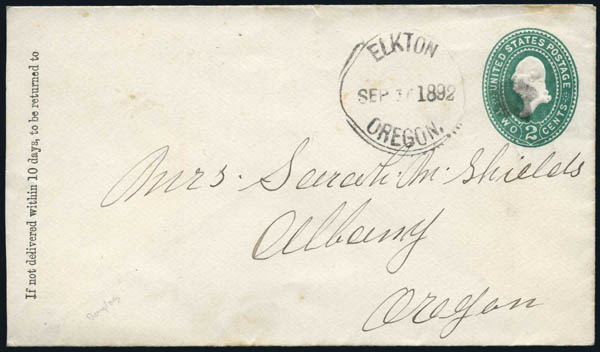 If not delivered within 10 days, to be returned to
ELKTON
SEP 1892
OREGON.
UNITED STATES POSTAGE
TWO 2 CENTS
Mrs. Sarah. M. Shields
Albany
Oregon